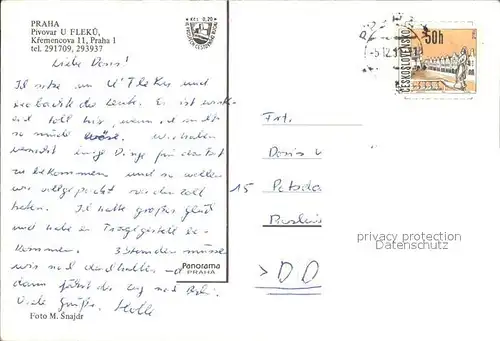 PRAHA
Pivovar U FLEKŮ,
Křemencova 11, Praha 1
tel. 291709, 293937
Kčs 0,20
Liebe Doris!
Ich sitze im U'Fleku und
beobachte die Leute. Es ist wirk-
lich toll hier, wenn ich nicht
so müde wäre. Wir haben
versucht einige Dinge für das Fest
zu bekommen und so wollen
wir vollgepackt zurück
haben. Ich hatte großes Glück
und habe ein Tragegestell be-
kommen. 3 Stunden müssen
wir noch durchhalten und
dann fährt der Zug nach Berlin.
Viele Grüße
Foto M. Šnajdr
Panorama
PRAHA
ČESKOSLOVENSKO
50h
-5.12.
Frl.
Doris
15 Potsda
Berlin
> DD
privacy protection
Datenschutz